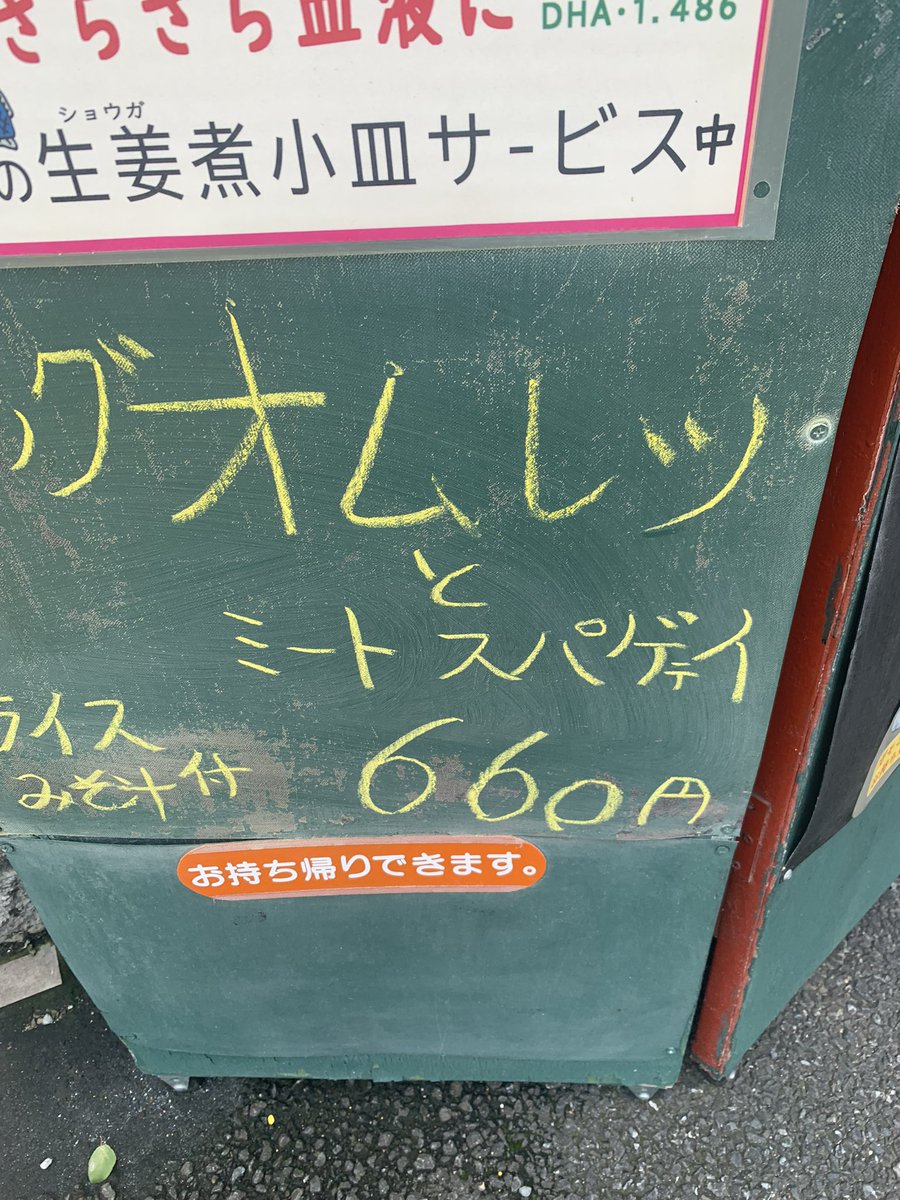 さらさら血液に DHA・1.486
ショウガ
の生姜煮小皿サービス中
グオムレツ
と
ミートスパゲティ
ライス
みそ汁付 660円
お持ち帰りできます。